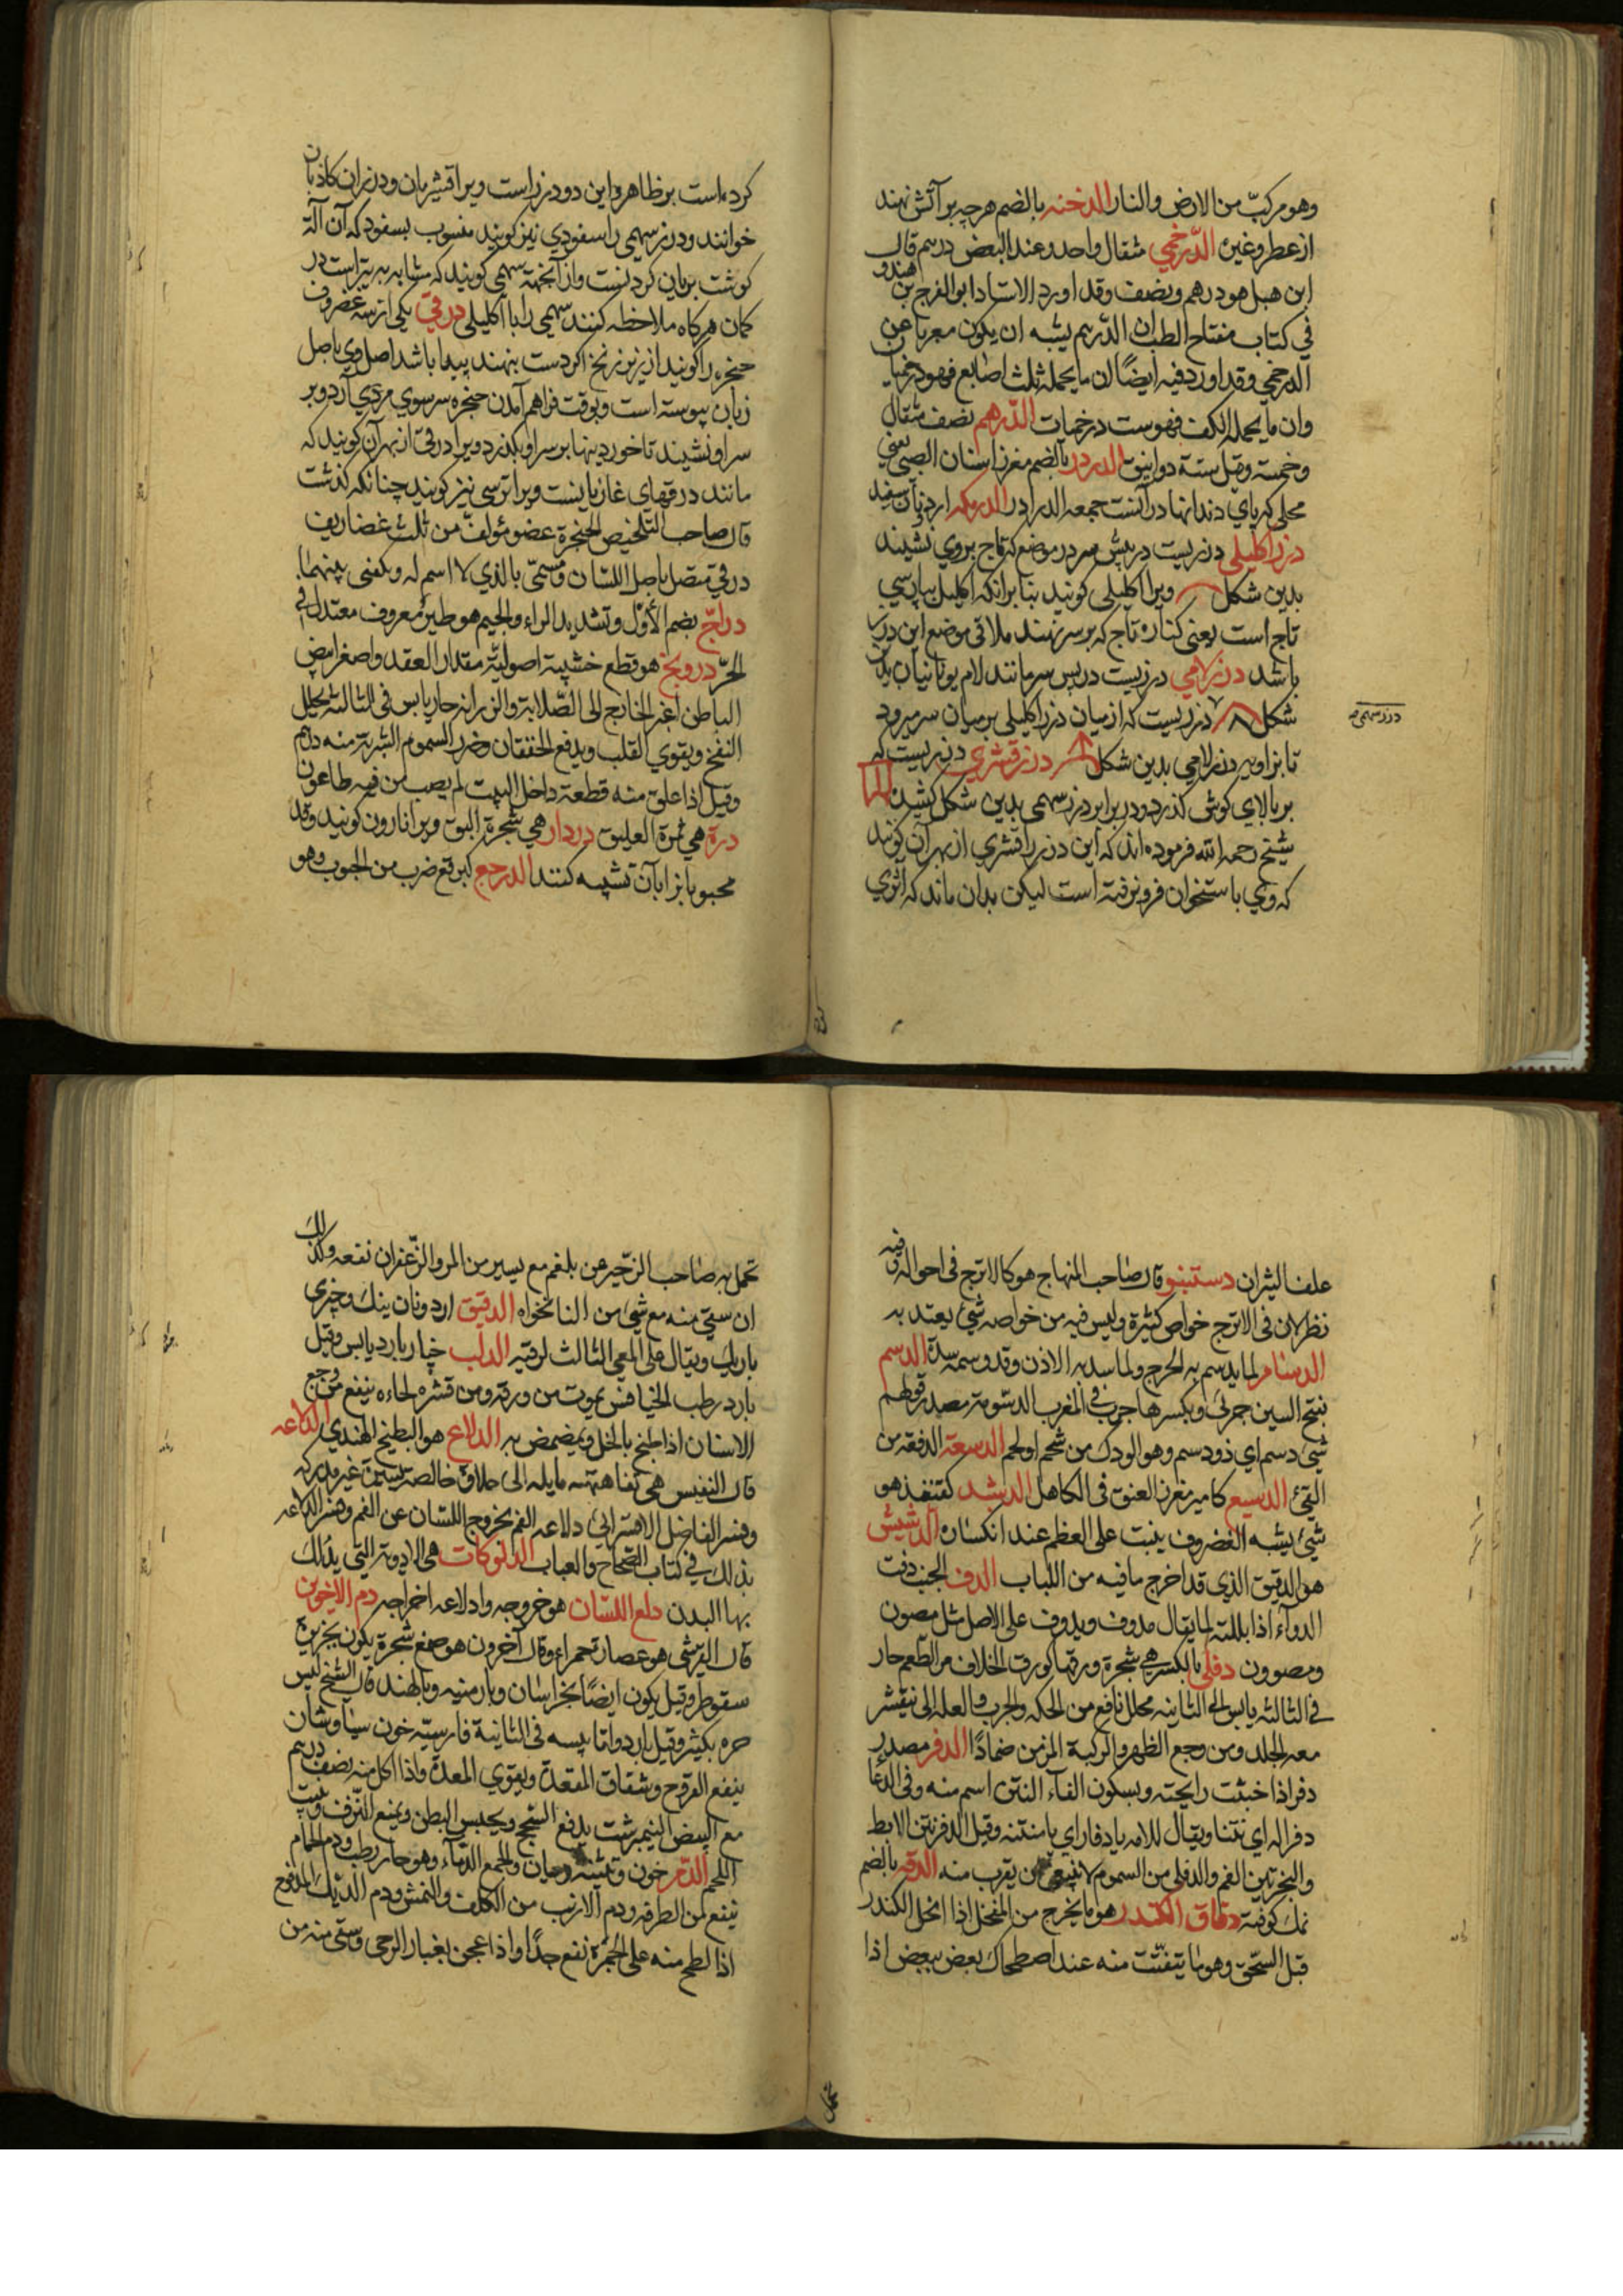 وهو مركبّ من الارض والنار الدخنه بالضم هرچه بر آتش نهند
از عطر وغيره الدّرخمي مثقال واحد وعند البعض درهم قال
ابن هبل هو درهم ونصف وقد اورد الاستاد ابو الفرج بن هندو
في كتاب مفتاح الطب ان الدّرهم يشبه ان يكون معربا عن
الدرخمي وقد اورد فيه ايضًا ان ما يحمله ثلث اصابع فهو درخميان
وان ما يحمله الكف فهو ست درخميات الدّرهم نصف مثقال
وخمسة وقيل ستة دوانيق الدردر بالضم مغرز اسنان الصبي يعني
محلي كه پاي دندانها در آنست جمعه الدرادر الدرمكه ارد نان سفيد
درز اكليلي درزيست در پيش سر در موضع كه تاج بروي نشيند
بدين شكل ويرا اكليلي كويند بنا برانكه اكليل بپارسي
تاج است يعني كناره تاج كه بر سر نهند ملاقي موضع اين درز
باشد درز لامي درزيست در پس سر مانند لام يونانيان بدين
شكل درزيست كه از ميان درز اكليلي بر ميان سر ميرود
درز سهمي
تا بزاويه درز لامي بدين شكل درز قشري درزيست كه
بر بالاي كوش كذرد ودر برابر درز سهمي بدين شكل
شيخ رحمه الله فرموده اند كه اين درز را قشري از بهر آن كويند
كه وي باستخوان فرو نرفته است ليكن بدان ماند كه اثري
كرده است بر ظاهر واين دو درز راست ويرا قشريان ودرزان كاذبان
خوانند ودرز سهمي را سفودي نيز كويند منسوب بسفود كه آن آلة
كوشت بريان كردنست واز آنجهة سهمي كويند كه مشابه به تيراست در
كمان هر كاه ملاحظه كنند سهمي را با اكليلي درقي يكي از سه غضروف
حنجره را كويند از زير زنخ اكر دست بنهند پيدا باشد اصل وي باصل
زبان پيوسته است وبوقت فراهم آمدن حنجره سر سوي مري آرد وبر
سر او نشيند تا خوردنيها بر سر او بكذرد ويرا درقي از بهر آن كويند كه
مانند درقهاي غازيانست ويرا ترسي نيز كويند چنانكه كذشت
قال صاحب التلخيص الحنجرة عضو مؤلف من ثلث غضاريف
درقي متصل باصل اللسان ومسمّى بالذي لا اسم له ومكفي بينهما
درّاج بضم الأوّل وتشديد الراء والجيم هو طير معروف معتدل في
الحرّ درونج هو قطع خشبية اصولية مقدار العقد واصغر ابيض
الباطن اغبر الخارج الى الصّلابة والرزانة حار يابس في الثالثة يحلل
النفخ ويقوي القلب ويدفع الخفقان وضرر السموم الشربة منه درهم
وقيل اذا علق منه قطعة داخل البيت لم يصب من فيه طاعون
درة هي ثمرة العليق دردار هي شجرة البق ويرا نارون كويند وقد
محبوبا نرا بآن تشبيه كنند الدرجع كبرقع ضرب من الحبوب وهو
علف الثيران دستنبو قال صاحب المنهاج هو كالاترج في احواله وفيه
نظر لان في الاترج خواص كثيرة وليس فيه من خواصه شئ يعتد به
الدسام لما يدسم به الجرح ولما سد به الاذن وقد وسمه سدّه الدسم
بفتح السين چربي وبكسرها چرب في المغرب الدسومة مصدر قولهم
شئ دسم اي ذو دسم وهو الودك من شحم او لحم الدسعة الدفعة من
القئ الدسيع كامير مغرز العنق في الكاهل الدشبد كقنفذ هو
شئ يشبه الغضروف ينبت على العظم عند انكساره الدشيش
هو الدقيق الذي قد اخرج ما فيه من اللباب الدف الجنب دفت
الدواء اذا بللته لما يقال مدوف ويدوف على الاصل مثل مصون
ومصوون دفلى بالكسر هي شجرة ورقها كورق الخلاف مر الطّعم حار
في الثالثة يابس الى الثانيه محلل نافع من الحكه والجرب والعله التي تتقشر
معه الجلد ومن وجع الظهر والركبة المزمن ضمادًا الدفر مصدر
دفر اذا خبثت رايحته وبسكون الفاء النتن اسم منه وفي الدعا
دفرا له اي نتنا ويقال للامه يا دفار اي يا منتنه وقيل الدفر نتن الابط
والبخر نتن الفم والدفلى من السموم لا ينبغي ان يقرب منه الدقه بالضم
نمك كوفته دقاق الكندر هو ما يخرج من المنخل اذا انخل الكندر
قبل السّحق وهو ما يتفتّت منه عند اصطكاك بعض ببعض اذا
تحمل به صاحب الزّحير عن بلغم مع يسير من المر والزّعفران نفعه وكذلك
ان سقي منه مع شئ من النانخواه الدقيق ارد ونان تنك وچيزي
باريك ويقال على المعي الثالث لرقته الدلب چنار بارد يابس وقيل
بارد رطب الخنافس يموت من ورقه ومن قشره لحاءه ينفع من وجع
الاسنان اذا طبخ بالخل وتمضمض به الدلاع هو البطيخ الهندي الدلاعه
قال النفيس هي تفاهة مايله الى حلاوة خالصة يسيرة غير مدركه
وفسر الفاضل الاقسرائي دلاعه الفم بخروج اللسان عن الفم وفسر الدلاعه
بذلك في كتاب الصّحاح والعباب الدلوكات هي الادوية التي يدلك
بها البدن دلع اللسان هو خروجه وادلاعه اخراجه دم الاخوين
قال القرشي هو عصارة حمراء وقال آخرون هو صمغ شجرة يكون بجزيرة
سقوطر وقيل يكون ايضًا بخراسان وبارمنيه وبالهند قال الشيخ ليس
حره بكثير وقيل بارد واما يبسه في الثانية فارسيته خون سياوشان
ينفع القروح وشقاق المقعدة ويقوي المعدة واذا اكل منه نصف درهم
مع البيض النيمبرشت يدفع السّحج ويحبس البطن ويمنع النّزف وينبت
اللحم الدّم خون والجمع الدّماء وهو حار رطب ودم الحمام
ينفع من الطرفه ودم الارنب من الكلف والنمش ودم الديك
اذا لطح منه على الجمرة نفع جدًا واذا عجن بغبار الرحى وسقي منه من